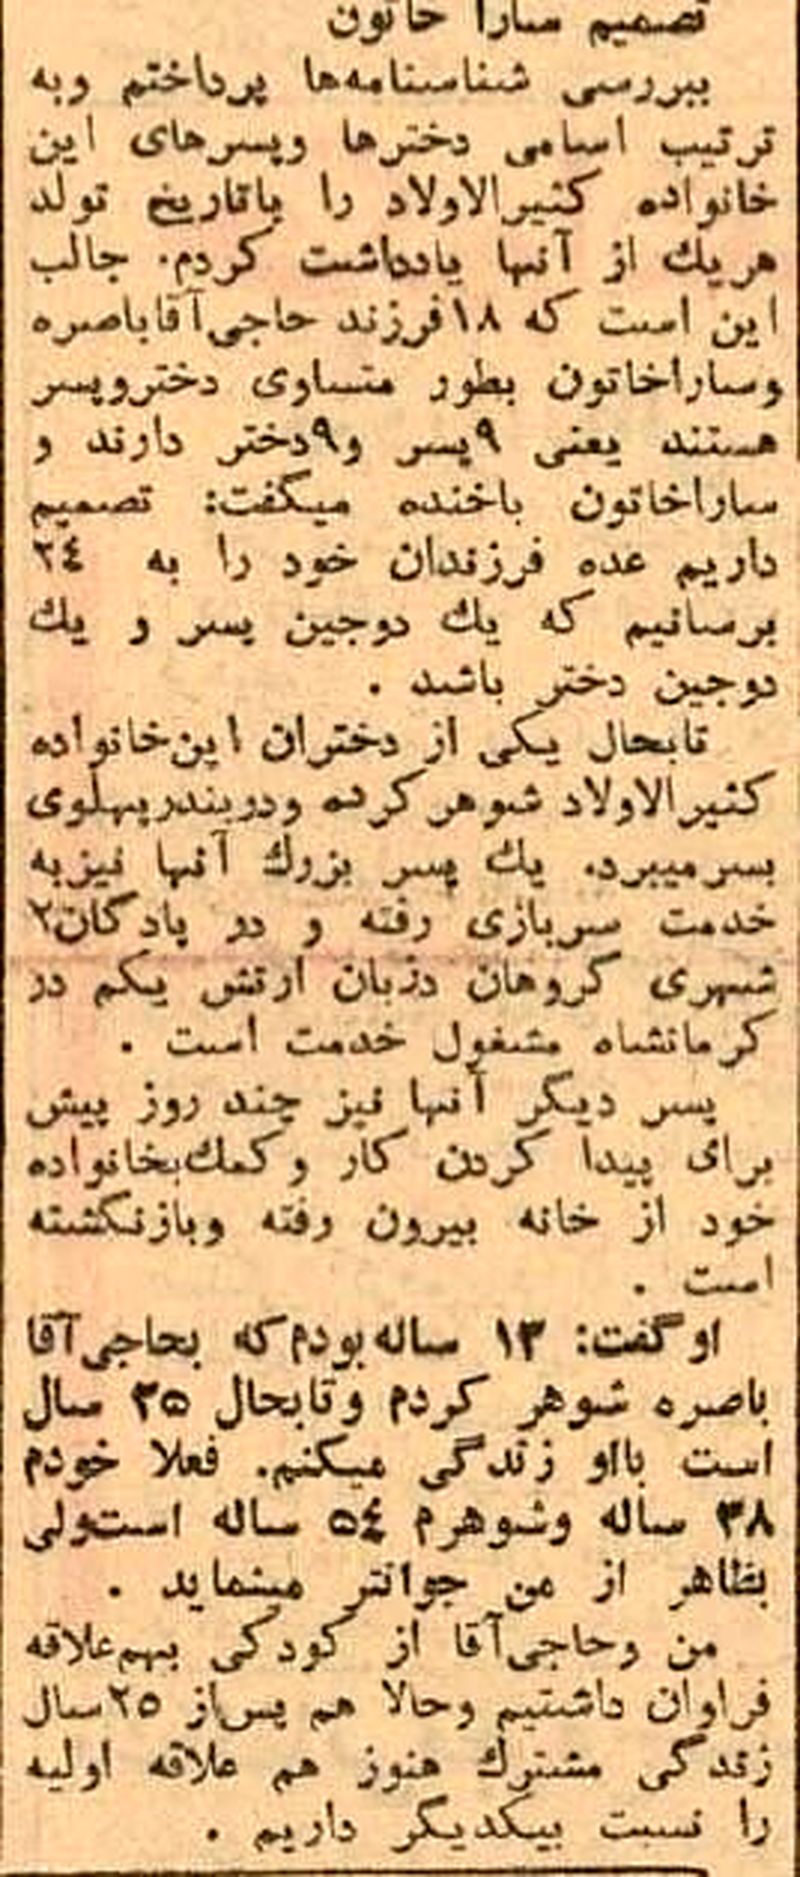 تصمیم سارا خاتون
ببررسی شناسنامه‌ها پرداختم وبه
ترتیب اسامی دخترها وپسرهای این
خانواده کثیرالاولاد را باتاریخ تولد
هریك از آنها یادداشت کردم. جالب
این است که ۱۸فرزند حاجی‌آقاباصره
وساراخاتون بطور متساوی دختروپسر
هستند یعنی ۹پسر و۹دختر دارند و
ساراخاتون باخنده میگفت: تصمیم
داریم عده فرزندان خود را به ۲٤
برسانیم که یك دوجین پسر و یك
دوجین دختر باشد .
تابحال یکی از دختران این‌خانواده
کثیرالاولاد شوهر کرده ودربندرپهلوی
بسرمیبرد. یك پسر بزرك آنها نیزبه
خدمت سربازی رفته و در پادگان۲
شهری گروهان دژبان ارتش یکم در
کرمانشاه مشغول خدمت است .
پسر دیگر آنها نیز چند روز پیش
برای پیدا کردن کار وکمك‌بخانواده
خود از خانه بیرون رفته وبازنگشته
است .
اوگفت: ۱۳ ساله‌بودم‌که بحاجی‌آقا
باصره شوهر کردم وتابحال ۲۵ سال
است بااو زندگی میکنم. فعلا خودم
۳۸ ساله وشوهرم ۵٤ ساله است‌ولی
بظاهر از من جوانتر مینماید .
من وحاجی‌آقا از کودکی بهم‌علاقه
فراوان داشتیم وحالا هم پس‌از ۲۵سال
زندگی مشترك هنوز هم علاقه اولیه
را نسبت بیکدیگر داریم .